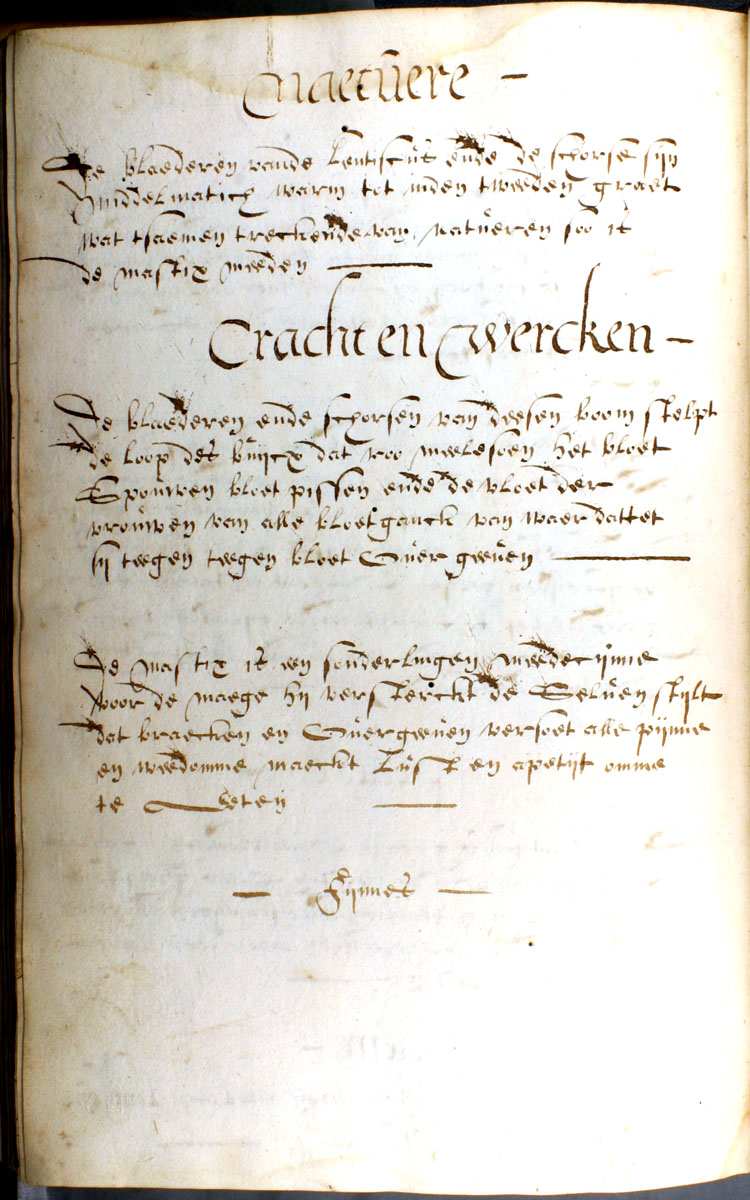 Naetuere –
De blaederen vande Lentiscus ende de schorse sijn
Middelmatich warm tot inden tweeden graet
wat tsaemen treckende van natueren soo is
de mastix meeden —
Cracht en wercken –
De blaederen ende schorsen van deesen boom stelpt
de loop des buijcx dat roo meelesoen het bloet
Spouwen bloet pissen ende de vloet der
vrouwen van alle bloetganck van waer dattet
sij teegen teegen bloet Ouer geeuen —
De mastix is een sonderlingen meedecijnne
voor de maege hij versterckt de Seluen stijlt
dat braecken en Ouergeeuen versoet alle pijnne
en weedomme maeckt Lust en apetijt omme
te Eeten —
— Fijnnes —